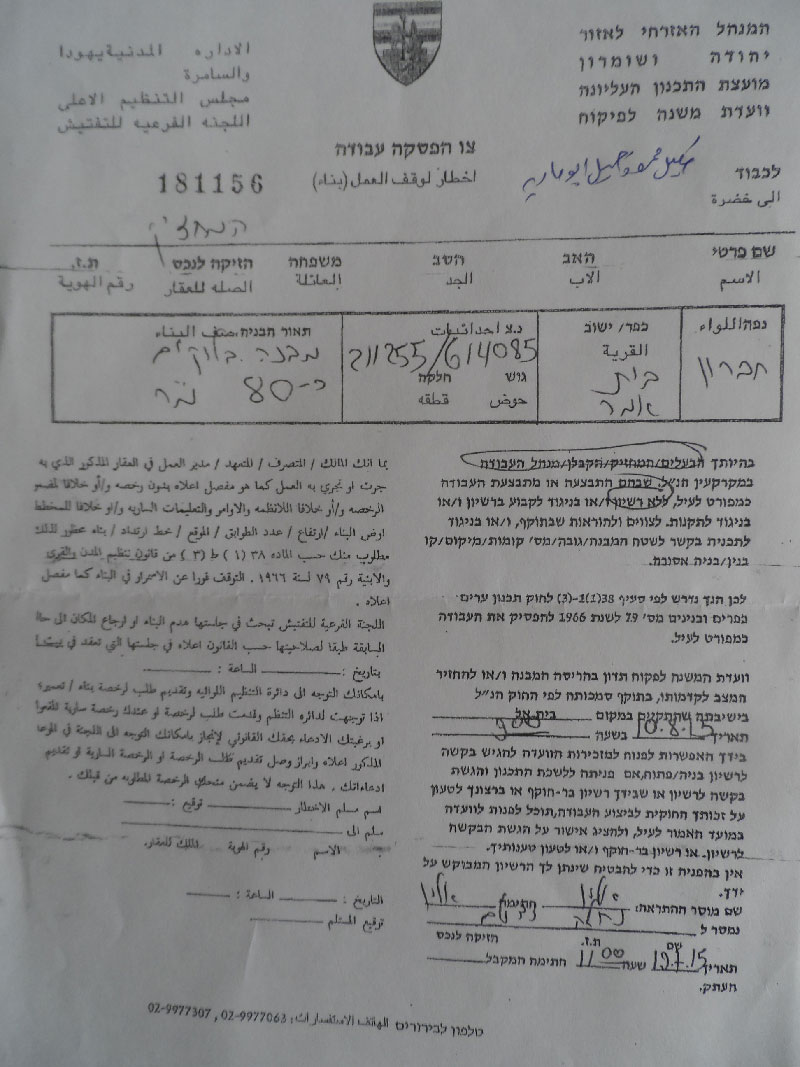 המנהל האזרחי לאזור
יהודה ושומרון
מועצת התכנון העליונה
וועדת משנה לפיקוח
الاداره المدنية يهودا
والسامرة
مجلس التنظيم الاعلى
اللجنه الفرعيه للتفتيش
צו הפסקה עבודה
اخطار لوقف العمل (بناء)
181156
לכבוד
الى حضرة
שם פרטי האב הסב משפחה הזיקה לנכס ת.ז.
الاسم الاب الجد العائلة الصله للعقار رقم الهوية
نفه اللواء
חברון
כפר/ ישוב
القرية
בית
אומר
נ.צ احداثيات
211255/614085
גוש חלקה
حوض قطقه
תאור הבניה صنف البناء
מבנה בלוקים
כ-80 מ"ר
בהיותך הבעלים/המחזיק/הקבלן/מנהל העבודה
במקרקעין הנ"ל שבהם התבצעה או מתבצעת העבודה
כמפורט לעיל, ללא רשיון ו/או בניגוד לקבוע ברשיון ו/או
בניגוד לתקנות. לצווים ולהוראות שבתוקף, ו/או בניגוד
לתכנית בקשר לשטח המבנה/גובה/מס' קומות/מיקום/קו
בנין/בניה אסורה.
לכן הנך נדרש לפי סעיף 38(1)-(3) לחוק תכנון ערים
כפרים ובנינים מס' 79 לשנת 1966 להפסיק את העבודה
כמפורט לעיל.
וועדת המשנה לפקוח תדון בהריסה המבנה ו/או להחזיר
המצב לקדמותו, בתוקף סמכותה לפי החוק הנ"ל
בישיבתה שתתקיים במקום בית אל
תאריך 10.8.15 בשעה 900
בידך האפשרות לפנות למזכירות הוועדה להגיש בקשה
לרשיון בניה/פתוח, אם פניתה ללשכת התכנון והגשת
בקשה לרשיון או שבידך רשיון בר-תוקף או ברצונך לטעון
על זכותך החוקית לביצוע העבודה, תוכל לפנות לוועדה
במועד האמור לעיל, ולהציג אישור על הגשת הבקשה
לרשיון. או רשיון בר-תוקף ו/או לטעון טענותיך.
אין בהפניה זו כדי להבטיח שינתן לך הרשיון המבוקש על
ידך.
שם מוסר ההתראה: חתימה
נמסר ל
שם ת.ז. הזיקה לנכס
תאריך 19.7.15 שעה 1100 חתימה המקבל
העתק.
بما انك المالك / المتصرف / المتعهد / مدير العمل في العقار المذكور الذي به
جرت او تجري به العمل كما هو مفصل اعلاه بدون رخصه و/أو خلافا لمضمون
الرخصه و/أو خلافا للانظمه والاوامر والتعليمات الساريه و/او خلافا للمخطط
ارض البناء /ارتفاع / عدد الطوابق / الموقع / خط ارتداد / بناء محظور لذلك
مطلوب منك حسب الماده ٣٨ (١) ط (٣) من قانون تنظيم المدن والقرى
والابنية رقم ٧٩ لسنة ١٩٦٦ . التوقف فورا عن الاستمرار في البناء كما مفصل
اعلاه .
اللجنة الفرعية للتفتيش تبحث في جلستها هدم البناء او ارجاع المكان الى حالته
السابقة طبقا لصلاحيتها حسب القانون اعلاه في جلستها التي تعقد في
بتاريخ : الساعة :
بامكانك التوجه الى دائرة التنظيم اللوائيه وتقديم طلب لرخصة بناء / تعمير؛
اذا توجهت لدائره التنظم وقدمت طلب لرخصة او عندك رخصة سارية المفعول
او برغبتك الادعاء بحقك القانوني لإنجاز بامكانك التوجه الى اللجنة في الموعد
المذكور اعلاه وابراز وصل تقديم طلب الرخصة او الرخصة السارية او تقديم
ادعاءاتك . هذا التوجه لا يضمن منحك الرخصة المطلوبه من قبلك .
اسم مسلم الاخطار توقيع :
سلم الى
الاسم رقم الهوية المالك للعقار.
التاريخ : الساعة :
توقيع المستلم
טלפון לבירורים الهاتف الاستفسارات: 02-9977063 , 02-9977307